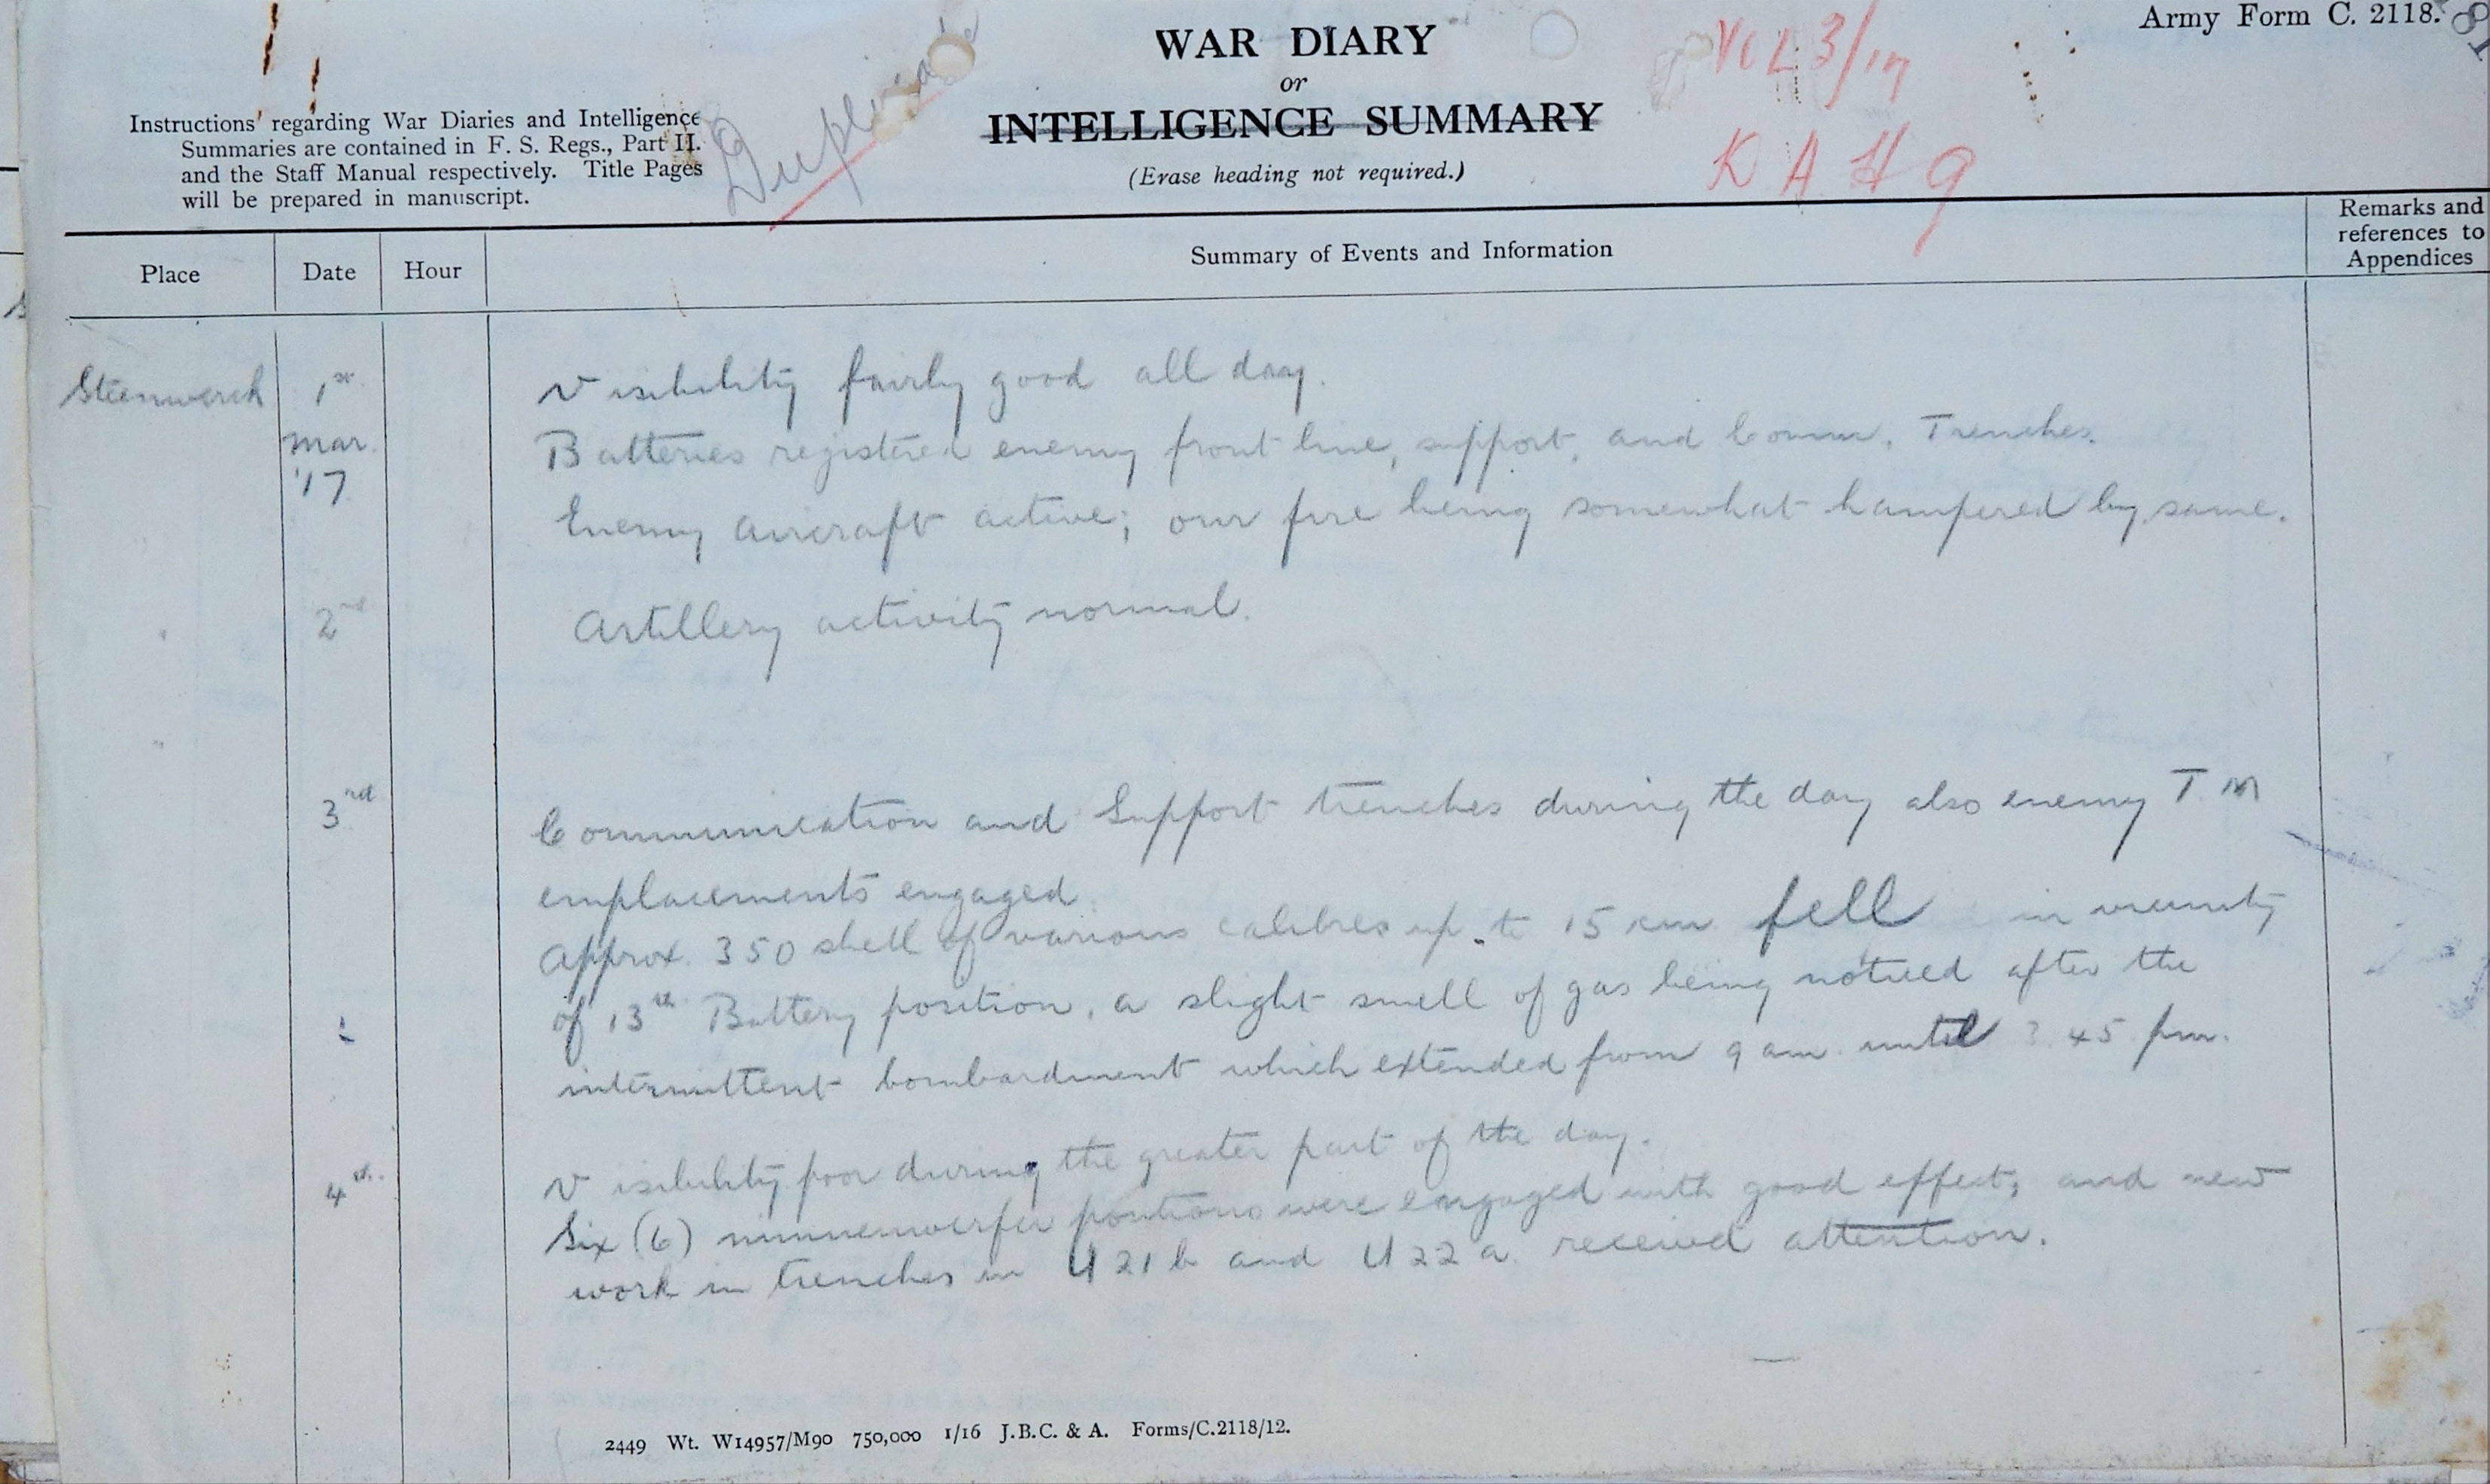 Army Form C. 2118.
WAR DIARY
or
INTELLIGENCE SUMMARY
(Erase heading not required.)
Instructions regarding War Diaries and Intelligence
Summaries are contained in F. S. Regs., Part II.
and the Staff Manual respectively. Title Pages
will be prepared in manuscript.
Duplicate
VOL 3/17
K A H 9
Place Date Hour Summary of Events and Information Remarks and
references to
Appendices
Steenwerck 1st Visibility fairly good all day.
Mar. Batteries registered enemy front line, support, and Comm. Trenches.
'17 Enemy Aircraft active; our fire being somewhat hampered by same.
2nd Artillery activity normal.
3rd Communication and Support trenches during the day also enemy T.M
emplacements engaged.
Approx. 350 shell of various calibres up to 15 cm fell in vicinity
of 13th Battery position, a slight smell of gas being noticed after the
intermittent bombardment which extended from 9 am. until 3.45 pm.
4th. Visibility poor during the greater part of the day.
Six (6) minnenwerfer positions were engaged with good effect; and new
work in trenches in U 21 b and U 22 a. received attention.
2449 Wt. W14957/M90 750,000 1/16 J.B.C. & A. Forms/C.2118/12.